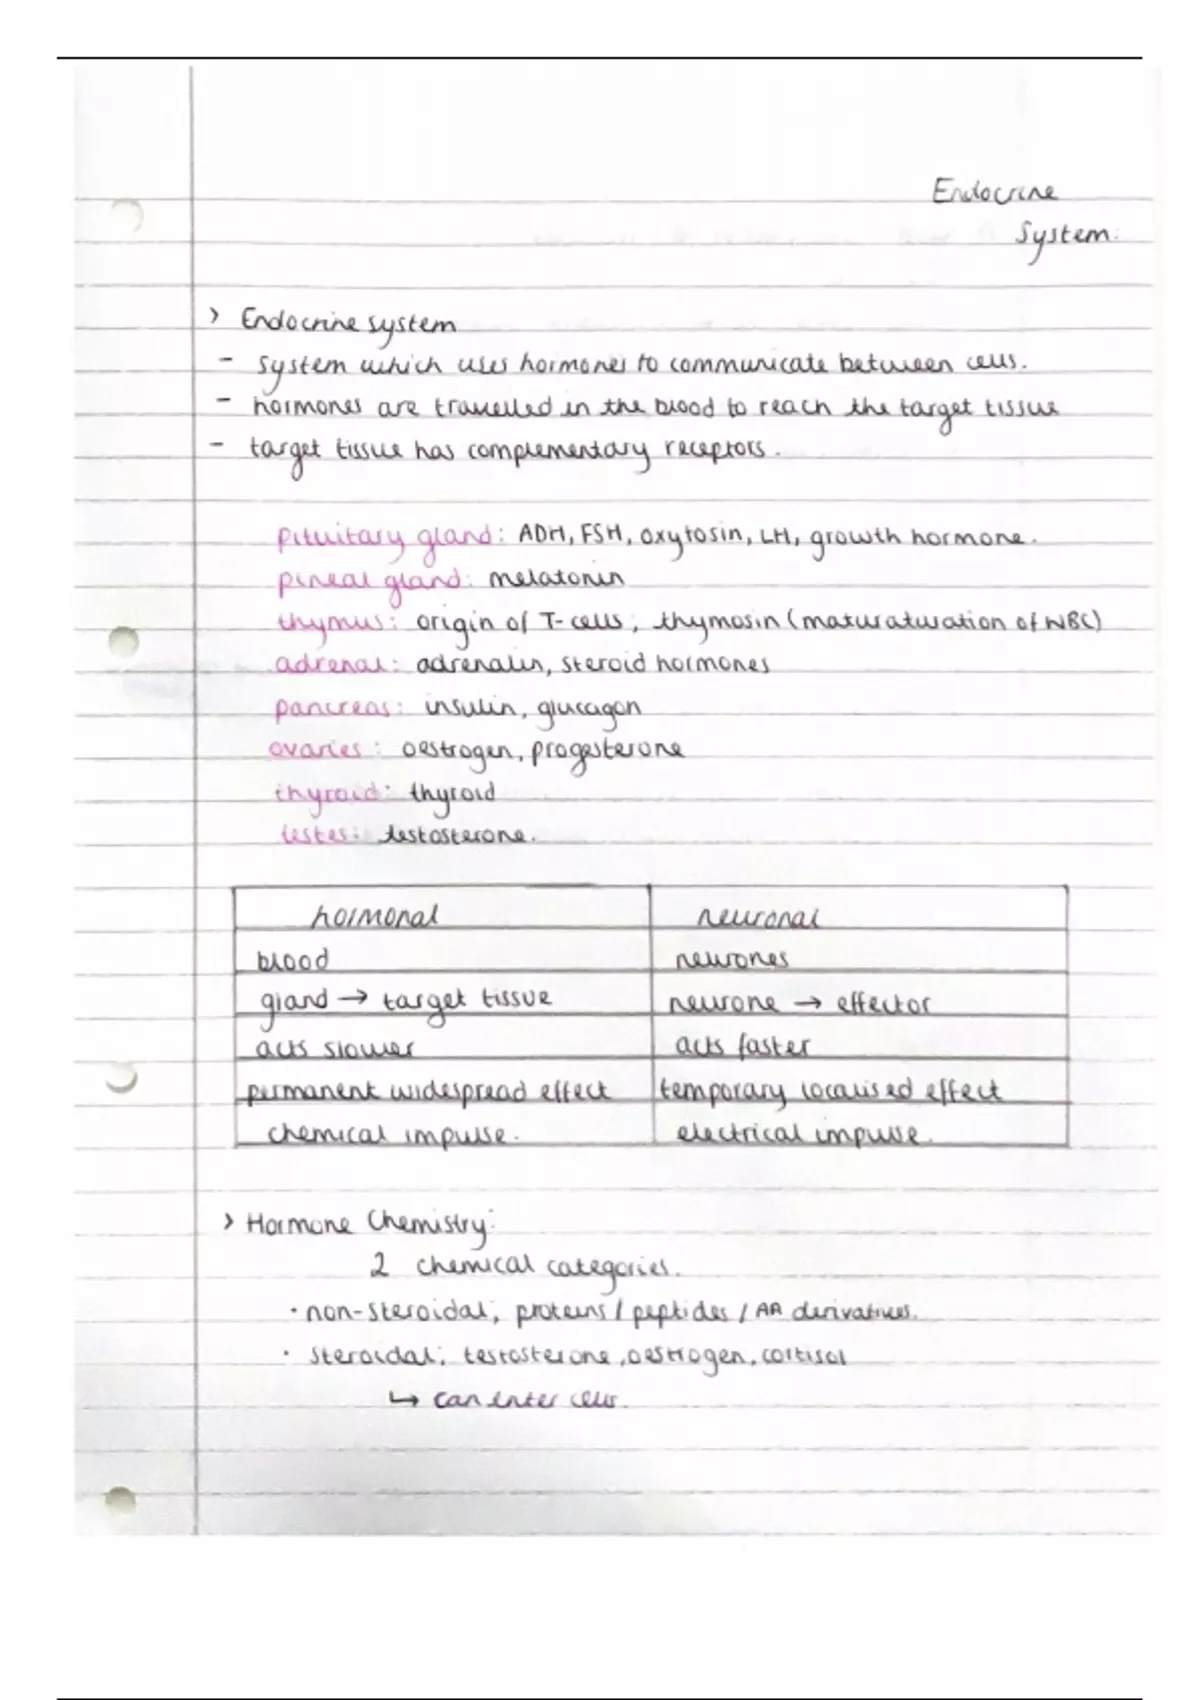 Endocrine
System.
> Endocrine system
- system which uses hormones to communicate between cells.
- hormones are travelled in the blood to reach the target tissue
- target tissue has complementary receptors.
pituitary gland: ADH, FSH, oxytosin, LH, growth hormone.
pineal gland: melatonin
thymus: origin of T-cells; thymosin (maturaturation of WBC)
adrenal: adrenalin, steroid hormones
pancreas: insulin, glucagon
ovaries: oestrogen, progesterone
thyroid: thyroid
testes: testosterone.
hormonal neuronal
blood neurones
gland → target tissue neurone → effector
acts slower acts faster
permanent widespread effect temporary localised effect
chemical impulse. electrical impulse.
> Hormone Chemistry:
2 chemical categories.
• non-steroidal; proteins / peptides / AA derivatives.
• steroidal; testosterone, oestrogen, cortisol
↳ can enter cells.